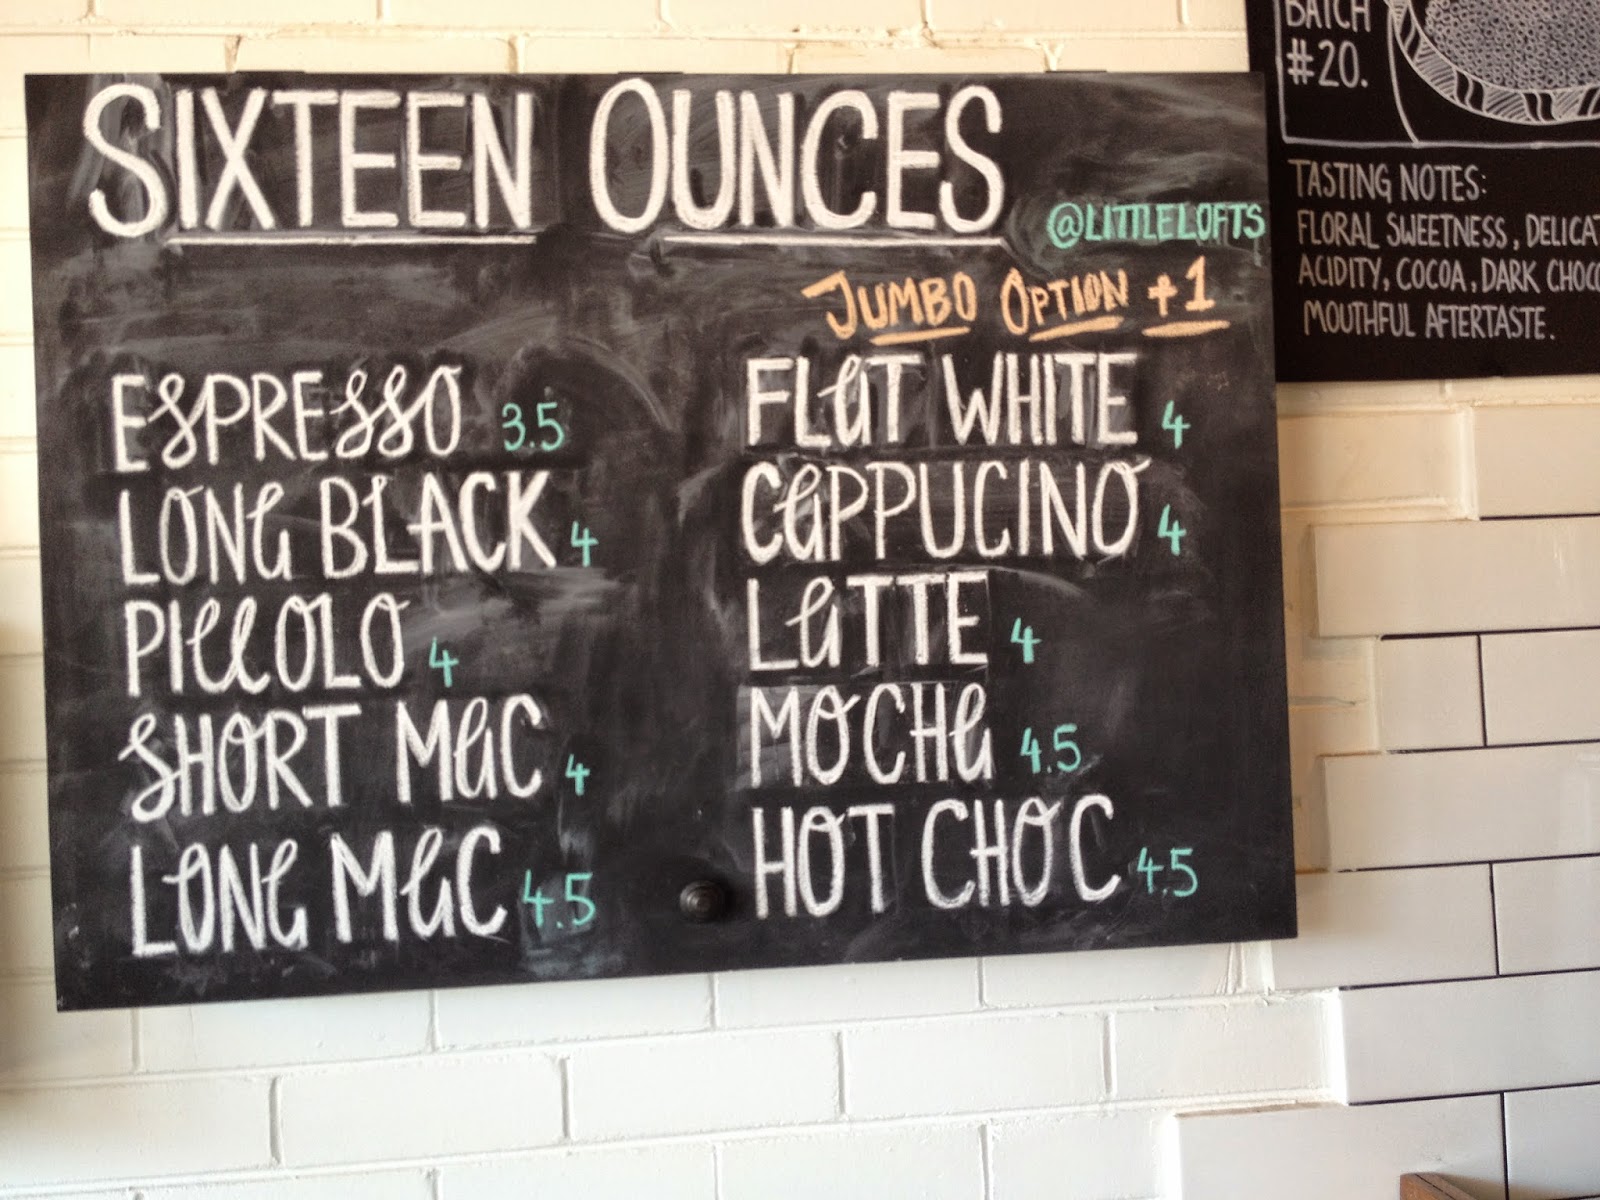 SIXTEEN OUNCES
@LITTLELOFTS
JUMBO OPTION +1
ESPRESSO 3.5
LONG BLACK 4
PICCOLO 4
SHORT MAC 4
LONG MAC 4.5
FLAT WHITE 4
CAPPUCINO 4
LATTE 4
MOCHA 4.5
HOT CHOC 4.5
BATCH
#20.
TASTING NOTES:
FLORAL SWEETNESS, DELICAT
ACIDITY, COCOA, DARK CHOC
MOUTHFUL AFTERTASTE.